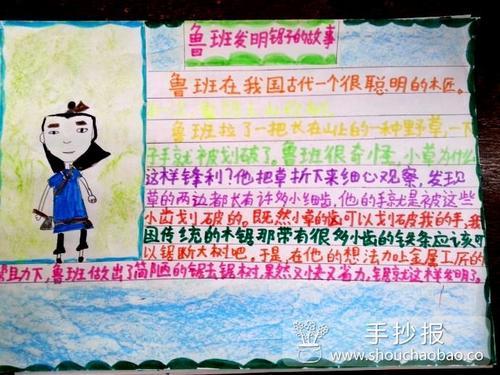 鲁班发明锯子的故事
鲁班在我国古代一个很聪明的木匠。
鲁班拉了一把长在山上的一种野草,一下
子手就被划破了。鲁班很奇怪,小草为什么
这样锋利?他把草折下来细心观察,发现
草的两边都长有许多小细齿,他的手就是被这些
小齿划破的。既然小草的齿可以划破我的手,我
国传统的木锯那带有很多小齿的铁条应该可
以锯断大树吧。于是,在他的想法加上金属工匠的
助力下,鲁班做出了简陋的锯去锯树,果然又快又省力,锯就这样发明了。
手抄报
www.shouchaobao.co